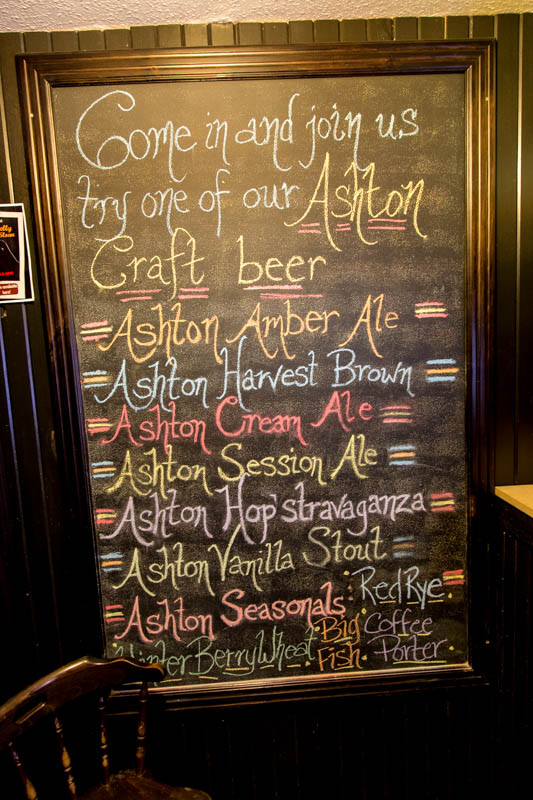 Come in and join us
try one of our Ashton
Craft beer
Ashton Amber Ale
Ashton Harvest Brown
Ashton Cream Ale
Ashton Session Ale
Ashton Hop'stravaganza
Ashton Vanilla Stout
Ashton Seasonals: Red Rye.
Winter Berry Wheat Big Fish. Coffee Porter